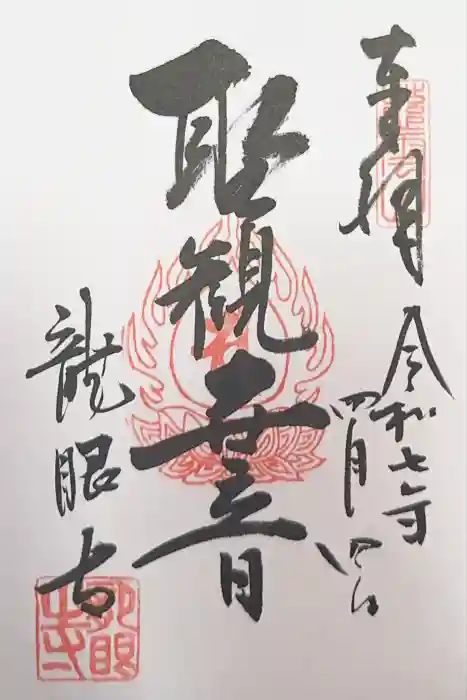 奉拝
令和七年
四月四日
聖観世音
龍眼寺